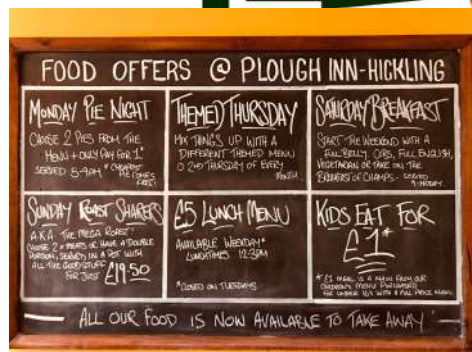 FOOD OFFERS @ PLOUGH INN-HICKLING
MONDAY PIE NIGHT
CHOOSE 2 PIES FROM THE
MENU + ONLY PAY FOR 1*
SERVED 5-9PM *CHEAPEST
PIE COMES
FREE!
THEMED THURSDAY
MIX THINGS UP WITH A
DIFFERENT THEMED MENU
2ND THURSDAY OF EVERY
MONTH
SATURDAY BREAKFAST
START THE WEEKEND WITH A
FULL BELLY. COBS, FULL ENGLISH,
VEGETARIAN OR TAKE ON THE
BREAKFAST OF CHAMPS. SERVED
9-
SUNDAY ROAST SHARERS
A.K.A. THE MEGA ROAST!
CHOOSE 2 x MEATS OR HAVE A DOUBLE
PORTION, SERVED IN A POT WITH
ALL THE GOOD STUFF
FOR JUST £19.50
£5 LUNCH MENU
AVAILABLE WEEKDAY*
LUNCHTIMES 12-3PM
*CLOSED ON TUESDAYS
KIDS EAT FOR
£1*
*£1 MEAL IS A MAIN FROM OUR
CHILDREN'S MENU PURCHASED
FOR UNDER WITH A FULL PRICE MAIN
ALL OUR FOOD IS NOW AVAILABLE TO TAKE AWAY